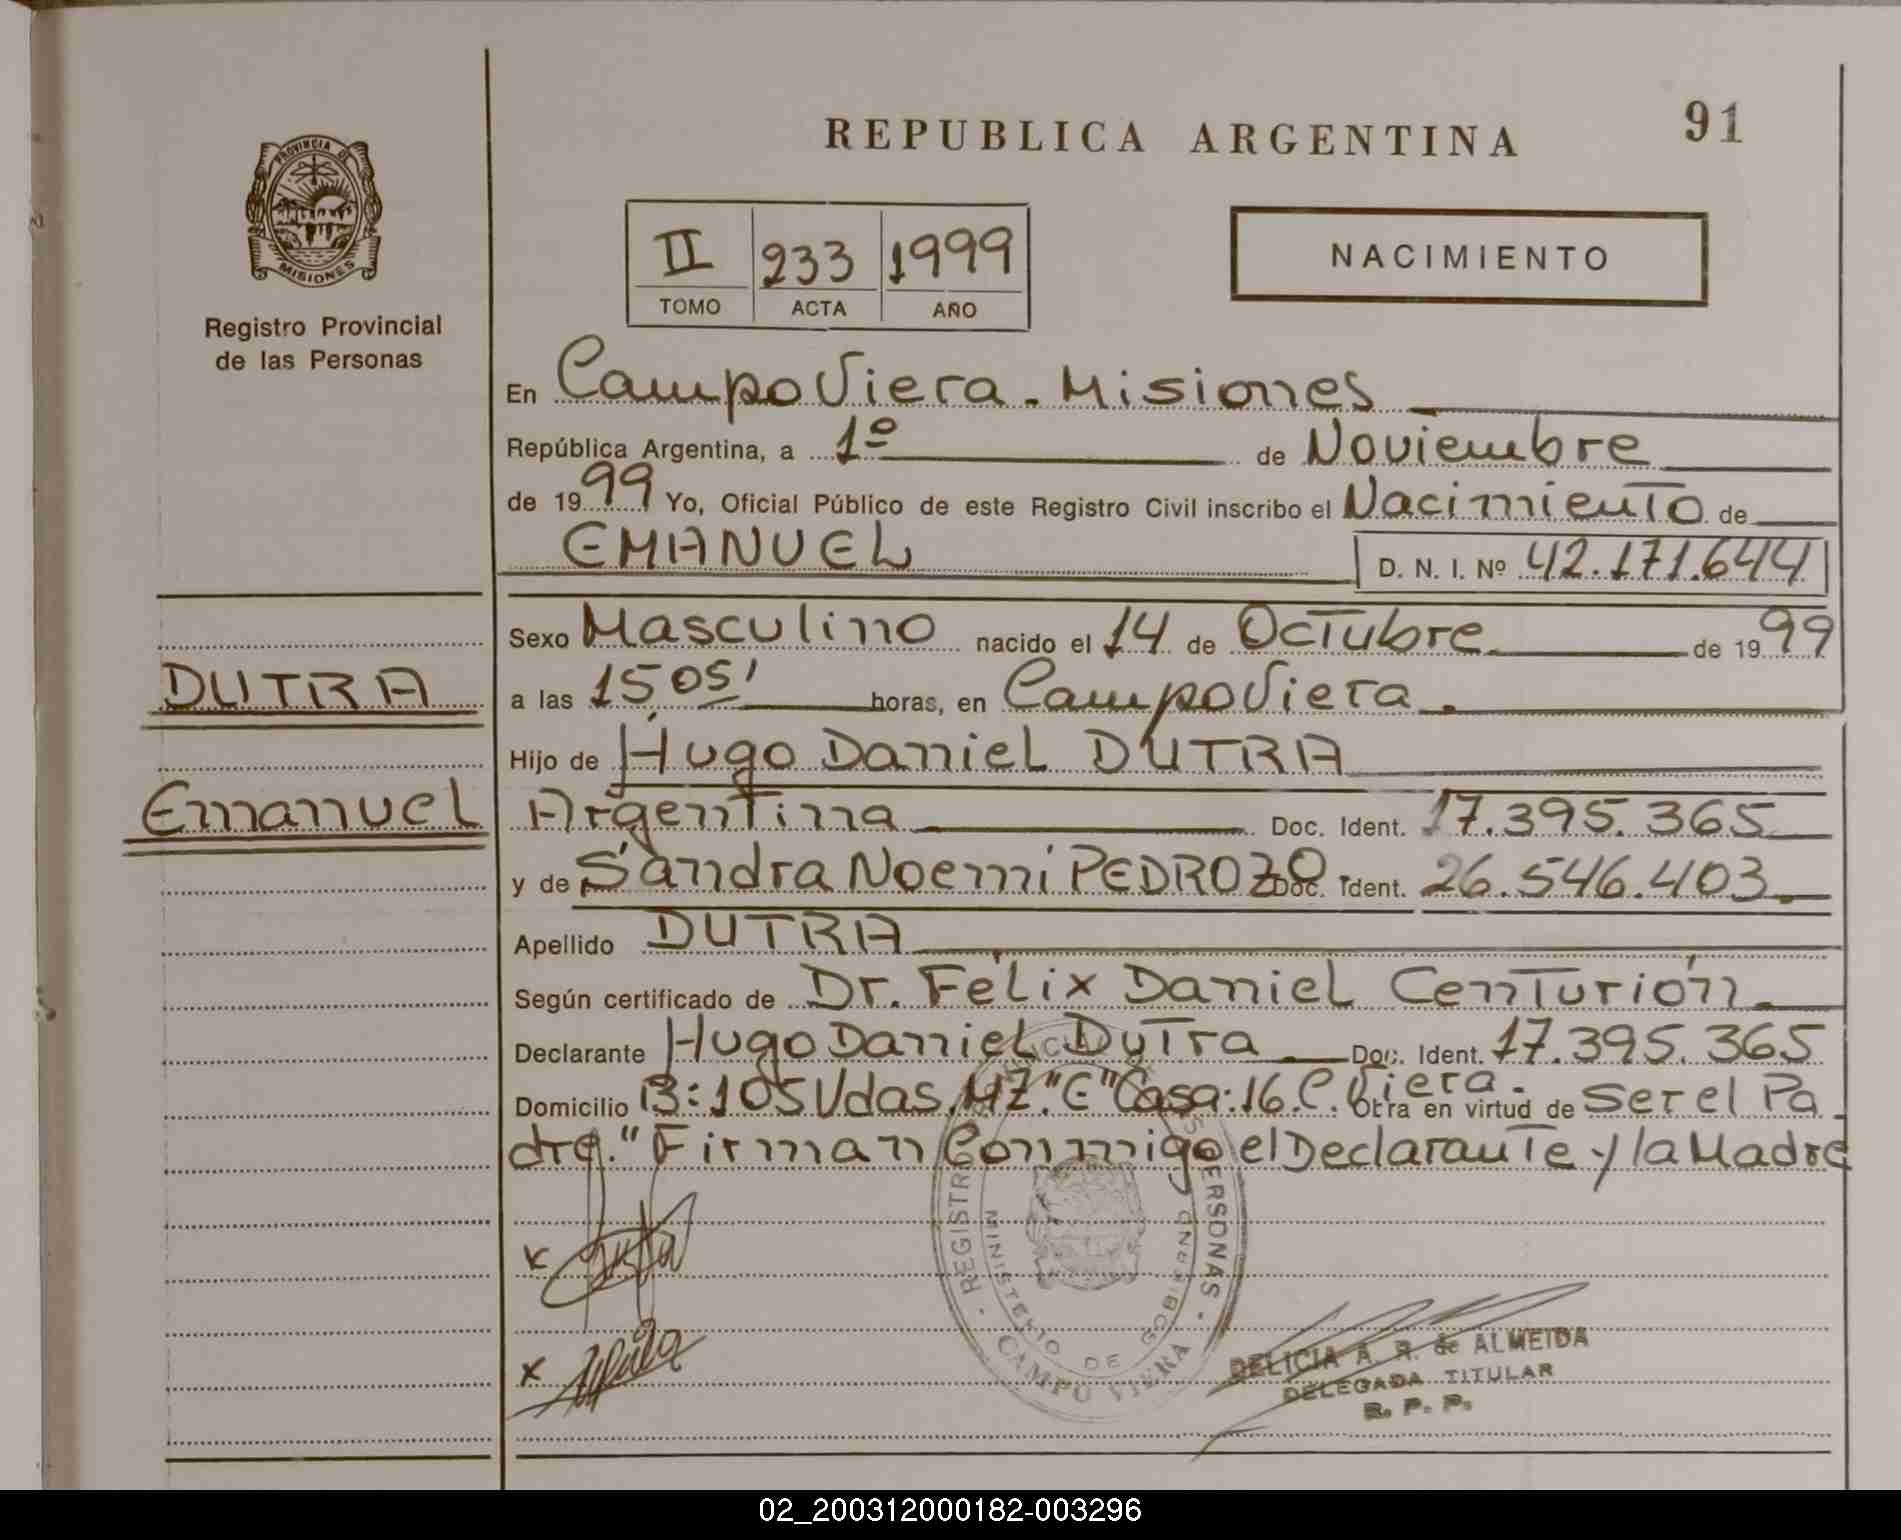 REPUBLICA ARGENTINA
91
PROVINCIA DE
MISIONES
Registro Provincial
de las Personas
II 233 1999
TOMO ACTA AÑO
NACIMIENTO
En Campo Viera. Misiones
República Argentina, a 1º de Noviembre
de 1999 Yo, Oficial Público de este Registro Civil inscribo el Nacimiento de
EMANUEL D. N. I. Nº 42.171.644
Sexo Masculino nacido el 14 de Octubre de 1999
a las 15 05' horas, en Campo Viera.
Hijo de Hugo Daniel DUTRA
Argentina Doc. Ident. 17.395.365
y de Sandra Noemi PEDROZO. Doc. Ident. 26.546.403.
Apellido DUTRA
Según certificado de Dr. Félix Daniel Centurión.
Declarante Hugo Daniel Dutra Doc. Ident. 17.395.365
Domicilio B:105 Vdas. MZ."E" Casa:16.C. Viera. Obra en virtud de Ser el Pa
dre." Firman Conmigo el Declarante y la Madre
DUTRA
Emanuel
REGISTR PERSONAS
MINISTERIO DE GOBIERNO
CAMPO VIERA
x
x
DELICIA A. R. de ALMEIDA
DELEGADA TITULAR
R. P. P.
02_200312000182-003296